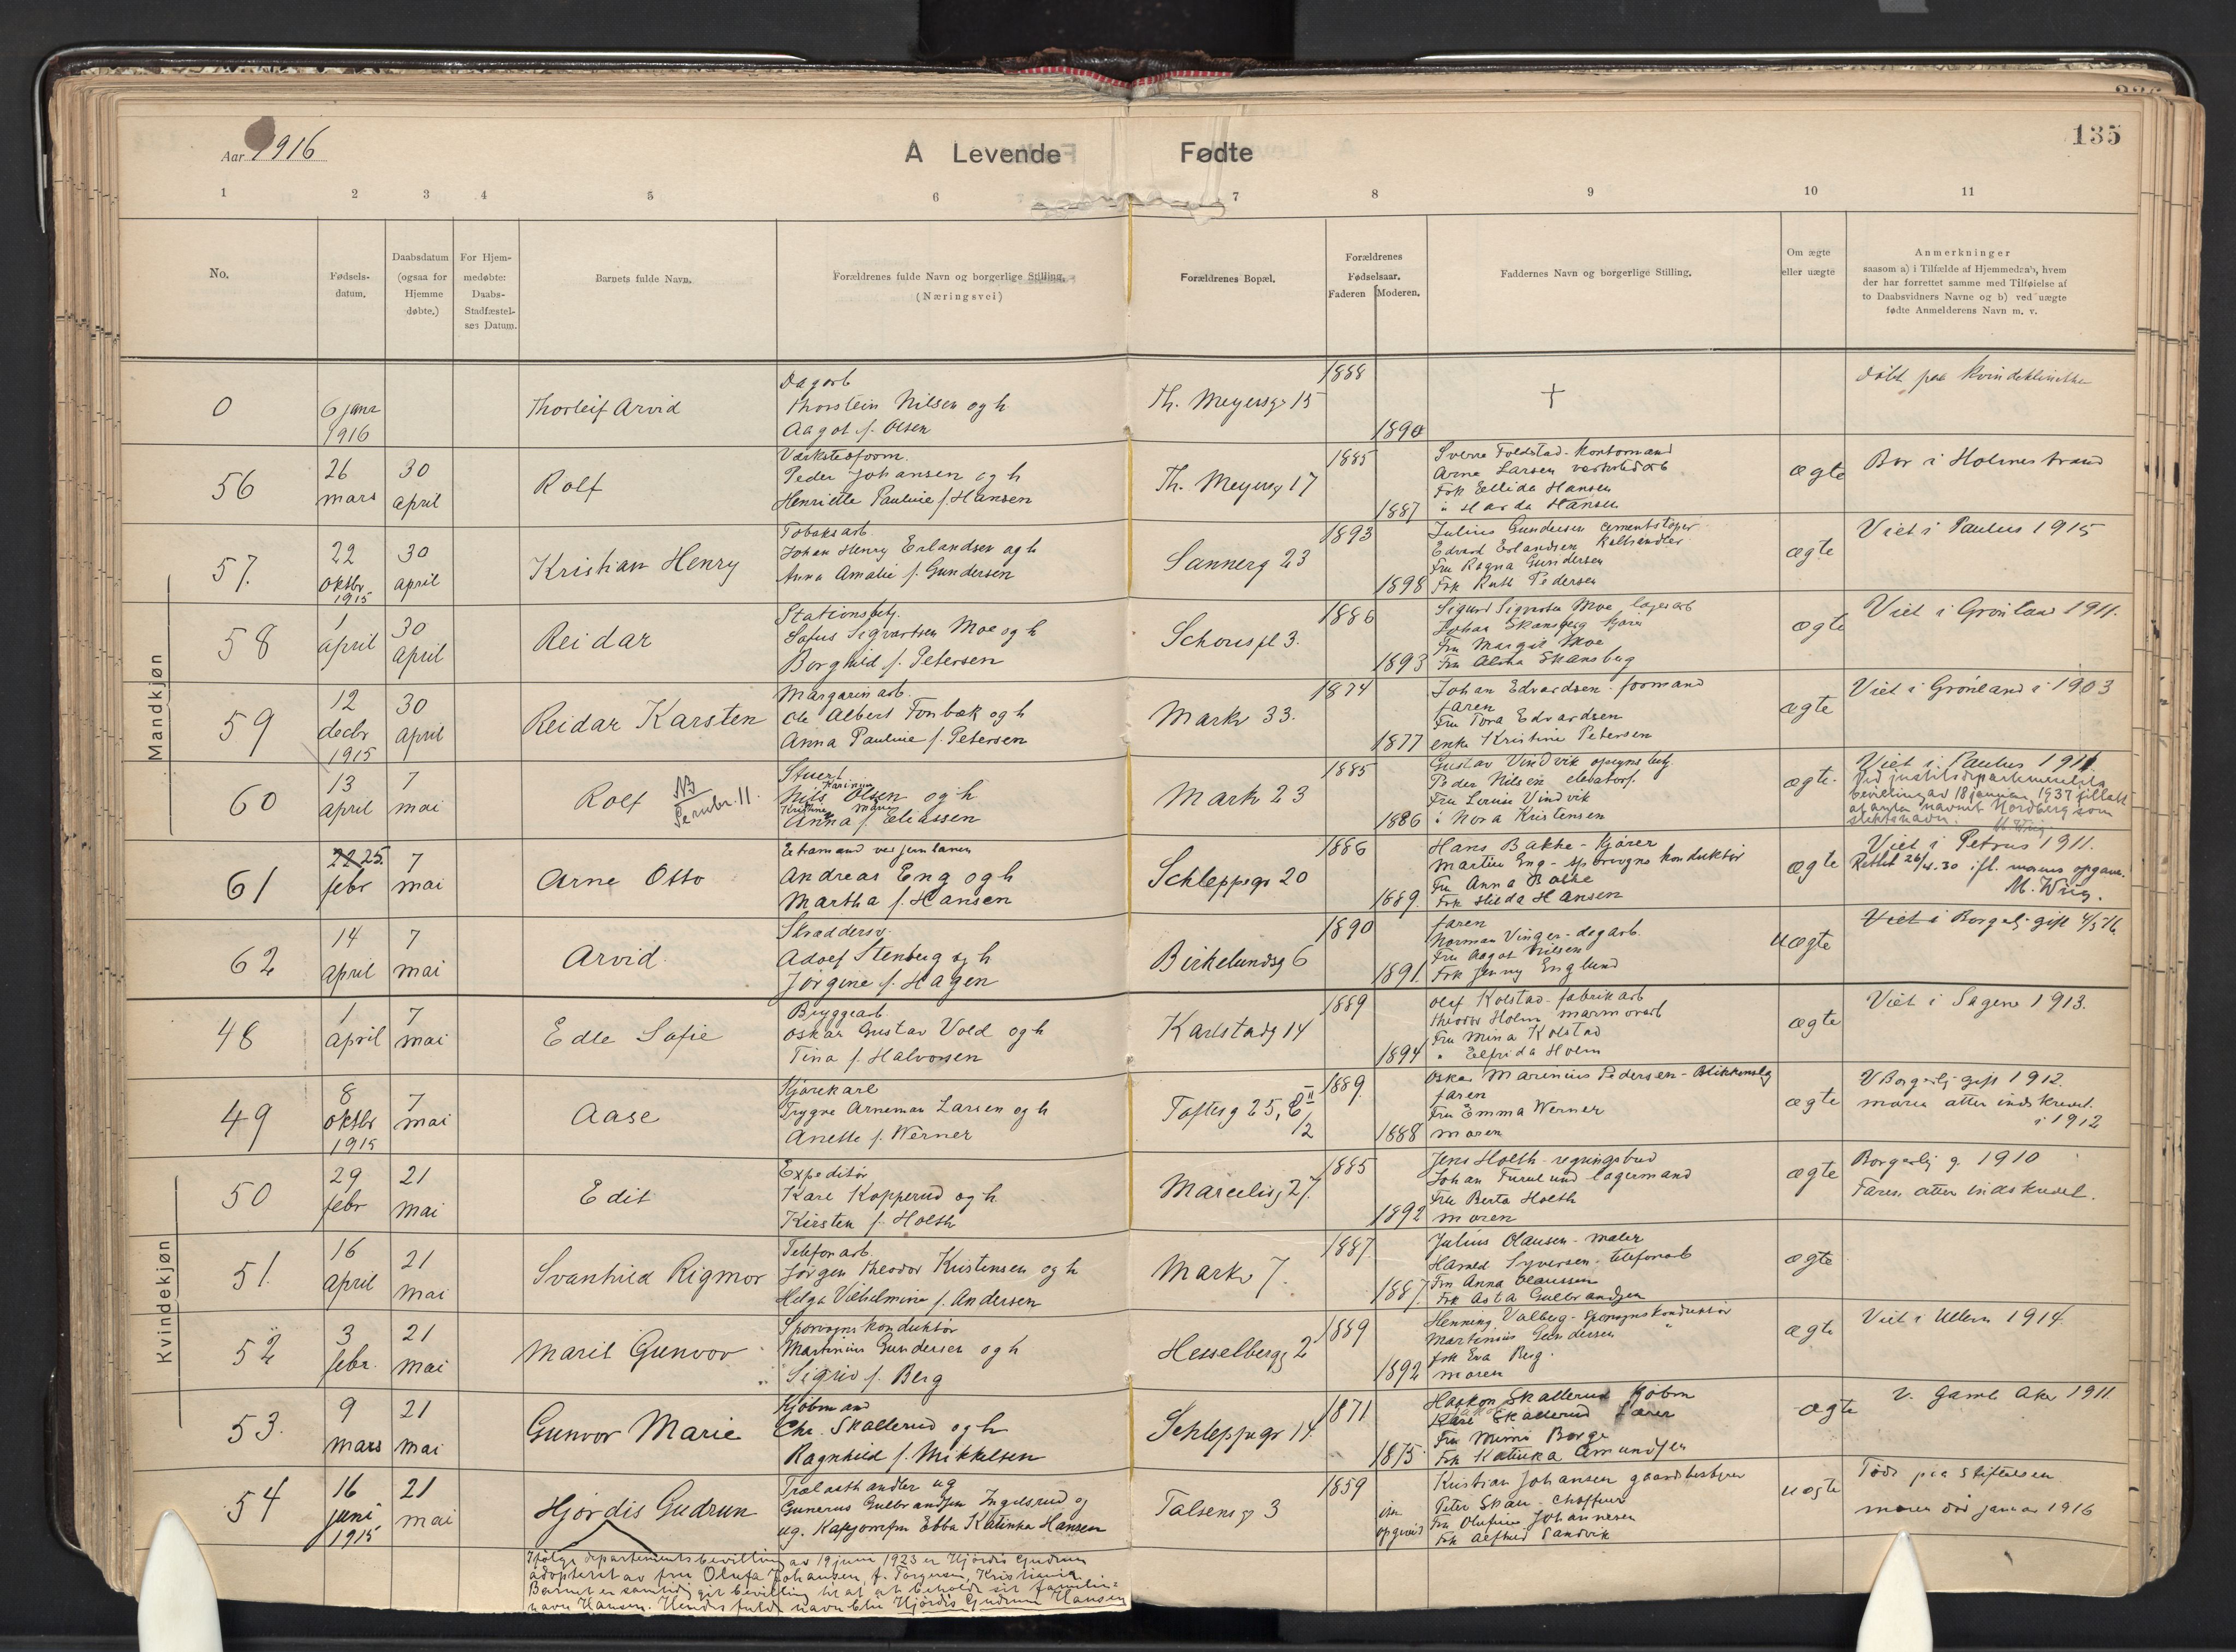 Aar 1916
A Levende Fødte
135
1 2 3 4 5 6 7 8 9 10 11
No.
Fødsels-
datum.
Daabsdatum
(ogsaa for
Hjemme
døbte.)
For Hjem-
medøbte:
Daabs-
Stadfæstel-
ses Datum.
Barnets fulde Navn.
Forældrenes fulde Navn og borgerlige Stilling.
(Næringsvei)
Forældrenes Bopæl.
Forældrenes
Fødselsaar.
Faderen Moderen.
Faddernes Navn og borgerlige Stilling.
Om ægte
eller uægte
Anmerkninger
saasom a) i Tilfælde af Hjemmedaab, hvem
der har forrettet samme med Tilføielse af
to Daabsvidners Navne og b) ved uægte
fødte Anmelderens Navn m. v.
Mandkjøn
0
6 janr
1916
Thorleif Arvid
Dagarb
Thorstein Nilsen og h
Aagot f. Olsen
Th. Meyersg 15
1888
1890
døbt paa Kvindeklinikken
56
26
mars
30
april
Rolf
Værkstedsform.
Peder Johansen og h
Henriette Pauline f. Hansen
Th. Meyersg 17
1885
1887
Sverre Foldstad - Kontormand
Arne Larsen værkstedarb
Frk Ellida Hansen
" Harda Hansen
ægte
Bor i Holmestrand
57.
22
oktbr
1915
30
april
Kristian Henry
Tobaksarb.
Johan Henry Erlandsen og h
Anna Amalie f. Gundersen
Sannerg 23
1893
1898
Julius Gundersen cementstøper
Edvard Erlandsen Kulhandler
Fru Ragna Gundersen
Frk Ruth Pedersen
ægte
Viet i Paulus 1915
58
1
april
30
april
Reidar
Stationsbetj.
Sofus Sigvartsen Moe og h
Borghild f. Petersen
Schouspl 3.
1886
1893
Sigurd Sigvartsen Moe, lagerarb
Johan Skansberg kjører
Fru Margit Moe
Fru Alsha Skansberg
ægte
Viet i Grønland 1911.
59
12
decbr
1915
30
april
Reidar Karsten
Margarinarb.
Ole Albert Fonbæk og h
Anna Pauline f. Petersen
Markv 33.
1874
1877
Johan Edvardsen - formand
faren
Fru Tora Edvardsen
enke Kristine Petersen
ægte
Viet i Grønland i 1903
60
13
april
7
mai
Rolf
NB
Stuert
Nils Olsen og h
Anna f. Eliassen
Markv 23
1885
1886
Gustav Vindvik opsynsbetj.
Peder Nilsen elevatorf.
Fru Louise Vindvik
" Nora Kristensen
ægte.
Viet i Paulus 1911.
Ved justitsdepartementets
bevilling av 18 januar 1937 tillatt
at anta navnet Nordberg som
slektsnavn. M. Wiig.
61
22 25.
febr
7
mai
Arne Otto
Extramand ved jernbanen
Andreas Eng og h
Martha f. Hansen
Schleppegr 20
1886
1889.
Hans Bakke - Kjører
Martin Eng - sporvogns konduktør
Fru Anna Bakke
Frk Hilda Hansen
ægte
Viet i Petrus 1911.
Rettet 26/4.30 ifl. morens opgave.
M. Wiig.
62
14
april
7
mai
Arvid
Skræddersv.
Adolf Stenberg og h
Jørgine f. Hagen
Birkelundsg 6
1890
1891.
faren
Norman Vinger - dagarb.
Fru Aagot Nilsen
Frk Jenny Englund
uægte
Viet i Borgerlig gift 4/5 16
Kvindekjøn
48
1
april
7
mai
Edle Sofie
Bryggearb
Oskar Gustav Vold og h
Tina f. Halvorsen
Karlstadg 14
1889
1894
Olaf Kolstad - fabrikarb
Theodor Holm marmorarb
Fru Mina Kolstad
" Elfrida Holm
ægte
Viet i Sagene 1913.
49
8
oktbr
1915
7
mai
Aase
Kjørekarl
Trygve Arneman Larsen og h
Anette f. Werner
Toftesg 25, E II
12
1889.
1888
Oskar Marinius Pedersen - Blikkenslg
faren
Fru Emma Werner
moren
ægte
V Borgerlig gift 1912.
moren atter indskrevet.
i 1912
50
29
febr
21
mai
Edit
Expeditør
Karl Kopperud og h
Kirsten f. Holth
Marcelisg 27.
1885
1892
Jens Holth - regningsbud
Johan Furulund lagermand
Fru Berta Holth
moren
ægte
Borgerlig g. 1910
Faren atter indskrevet.
51.
16
april
21
mai
Svanhild Rigmor
Telefonarb.
Jørgen Theodor Kristensen og h
Helga Vilhelmine f. Andersen
Markv 7.
1887
1887.
Julius Olausen - maler
Harald Syversen - telefonarb
Fru Anna Olaussen
Frk Asta Gulbrandsen
ægte
52
3
febr.
21
mai
Marit Gunvov
Sporvognskonduktør
Martinius Gundersen og h
Sigrid f. Berg
Hesselbergg 2
1889
1892
Henning Valberg - Sporvognskonduktør
Martinius Gundersen "
frk Eva Berg.
moren
ægte
Viet i Ullern 1914
53.
9
mars
21
mai
Gunvor Marie
Kjøbmand
Chr. Skallerud og h
Ragnhild f. Mikkelsen
Schleppegr 14
1871
1875.
Haakon Skallerud Kjøbm
Kåre Skallerud Lærer
Fru Mimi Borge
Frk Katinka Amundsen
ægte
V. Gaml Aker 1911.
54
16
juni
1915
21
mai
Hjørdis Gudrun
Trælasthandler ug
Gunerus Gulbrandsen Ingelsrud og
ug. Kassjomfru Ebba Katinka Hansen
Talsensg 3
1859
ikke
opgivid
Kristian Johansen gaardbestyrer
Peter Skau - Chaffeur
Fru Olufine Johannesen
Frk Alfhild Sandvik
uægte
Født paa Stiftelsen
moren død januar 1916
Ifølge departementsbevilling av 19 juni 1923 er Hjørdis Gudrun
adopteret av fru Olufa Johansen, f. Torgersen, Kristiania.
Barnet er samtidig git bevilling til at at beholde sit familie=
navn Hansen. Hendes fulde navn blir Hjørdis Gudrun Hansen